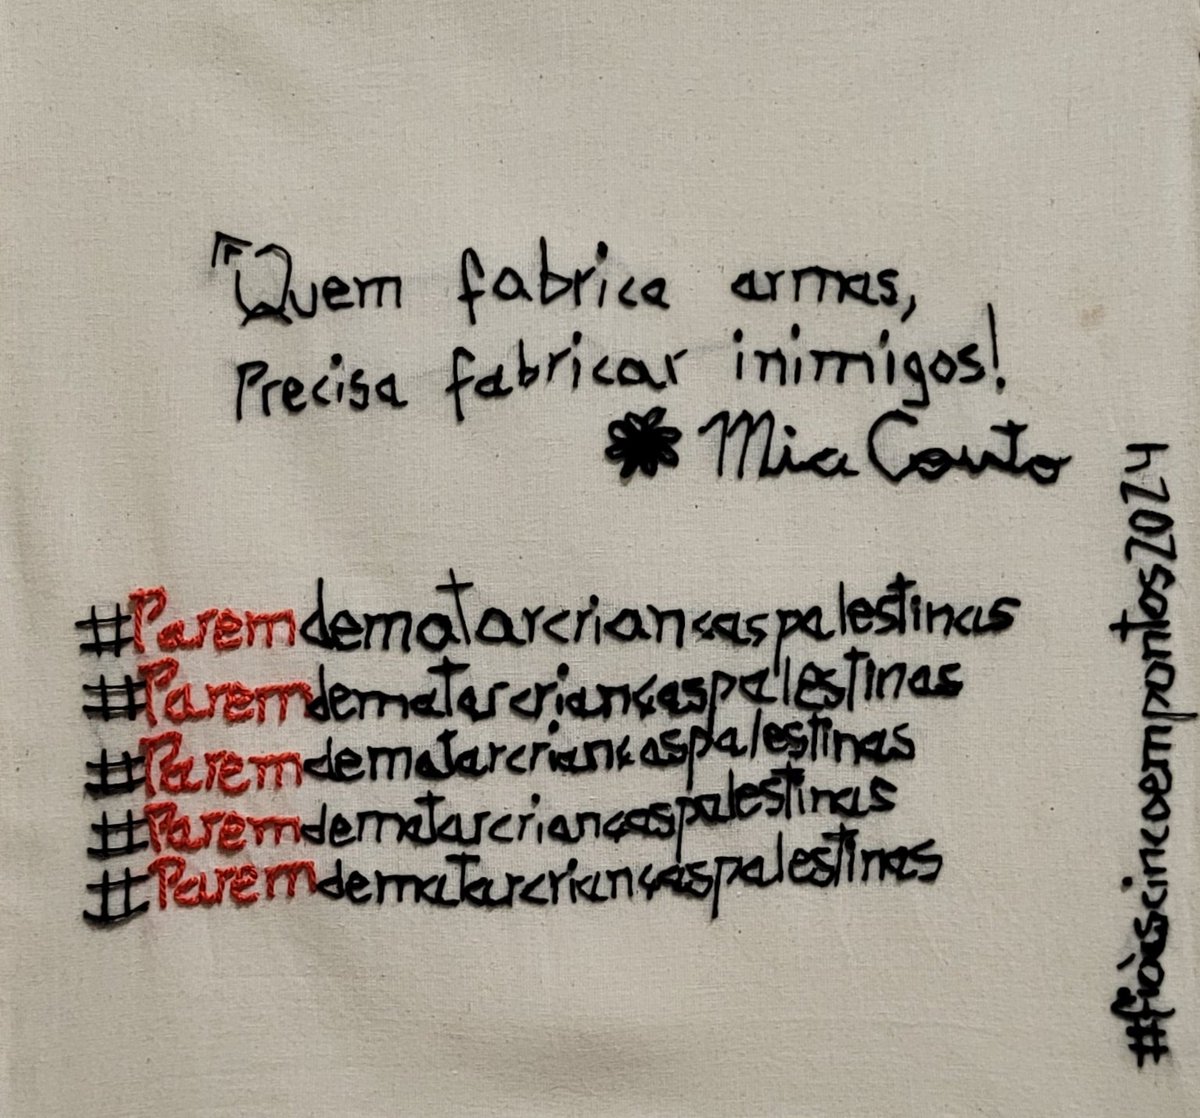 "Quem fabrica armas,
Precisa fabricar inimigos!
Mia Couto
#Paremdematarcriançaspalestinas
#Paremdematarcriançaspalestinas
#Paremdematarcriançaspalestinas
#Paremdematarcriançaspalestinas
#Paremdematarcriançaspalestinas
#fioàscincoempontos2024